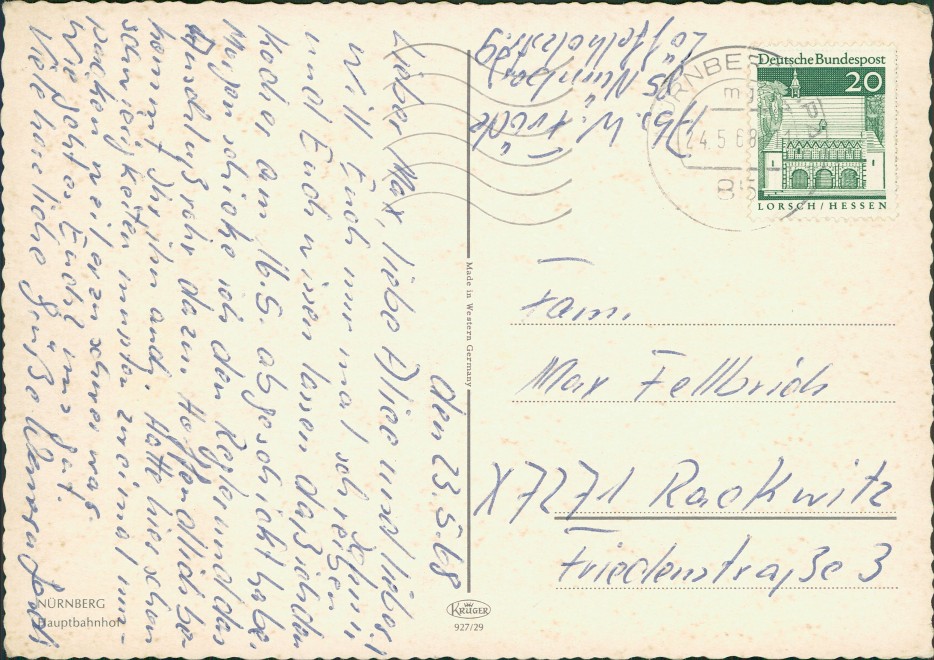 den 23.5.68
Lieber Max, liebe Aliee und lieber
Will Euch nur mal schreiben
und Euch wissen lassen daß ich den
Koder am 16.5. abgeschickt habe.
Morgen schicke ich den Regler und das
Anschlußrohr dazu. Hoffendlich be-
kommt Ihr ihn auch. Hatte hier schon
schwierigkeiten mußte zweimal um-
packen weil er zu schwer war.
Wie geht es Euch? uns gut.
Viele herzliche Grüße
Abs. W.
85 Nürnberg
Deutsche Bundespost
20
LORSCH/HESSEN
NÜRNBERG
24.5.68
85
Fam.
Max Fellbrich
X7271 Rackwitz
Friedenstraße 3
Made in Western Germany
KRÜGER
927/29
NÜRNBERG
Hauptbahnhof